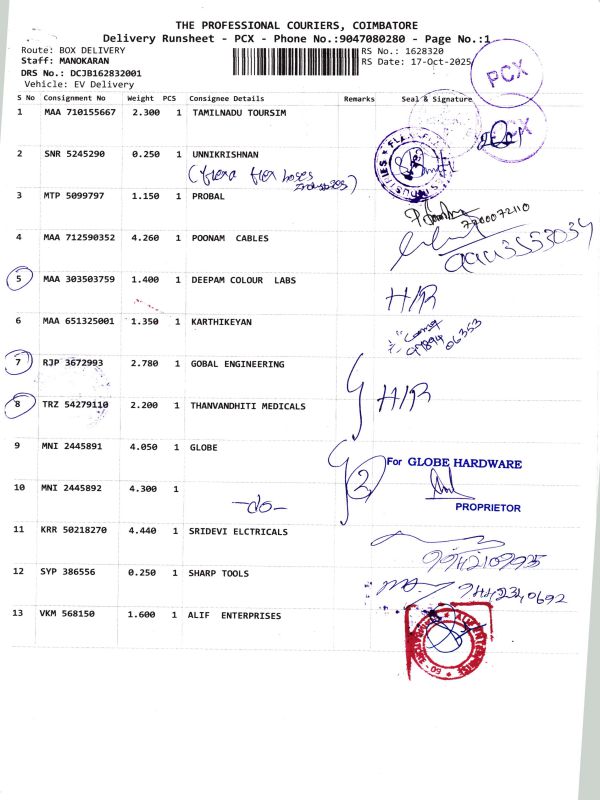 THE PROFESSIONAL COURIERS, COIMBATORE
Delivery Runsheet - PCX - Phone No.:9047080280 - Page No.:1
Route: BOX DELIVERY
RS No.: 1628320
Staff: MANOKARAN
RS Date: 17-Oct-2025
DRS No.: DCJB162832001
Vehicle: EV Delivery
PCX
S No Consignment No Weight PCS Consignee Details Remarks Seal & Signature
PCX
1 MAA 710155667 2.300 1 TAMILNADU TOURSIM
2 SNR 5245290 0.250 1 UNNIKRISHNAN
(flexa flex hoses
3 MTP 5099797 1.150 1 PROBAL
7200072110
4 MAA 712590352 4.260 1 POONAM CABLES
5 MAA 303503759 1.400 1 DEEPAM COLOUR LABS
H/R
6 MAA 651325001 1.350 1 KARTHIKEYAN
97894 06353
7 RJP 3672993 2.780 1 GOBAL ENGINEERING
8 TRZ 54279110 2.200 1 THANVANDHITI MEDICALS
H/R
9 MNI 2445891 4.050 1 GLOBE
2
For GLOBE HARDWARE
10 MNI 2445892 4.300 1
-do-
PROPRIETOR
11 KRR 50218270 4.440 1 SRIDEVI ELCTRICALS
9942109935
12 SYP 386556 0.250 1 SHARP TOOLS
9442340692
13 VKM 568150 1.600 1 ALIF ENTERPRISES